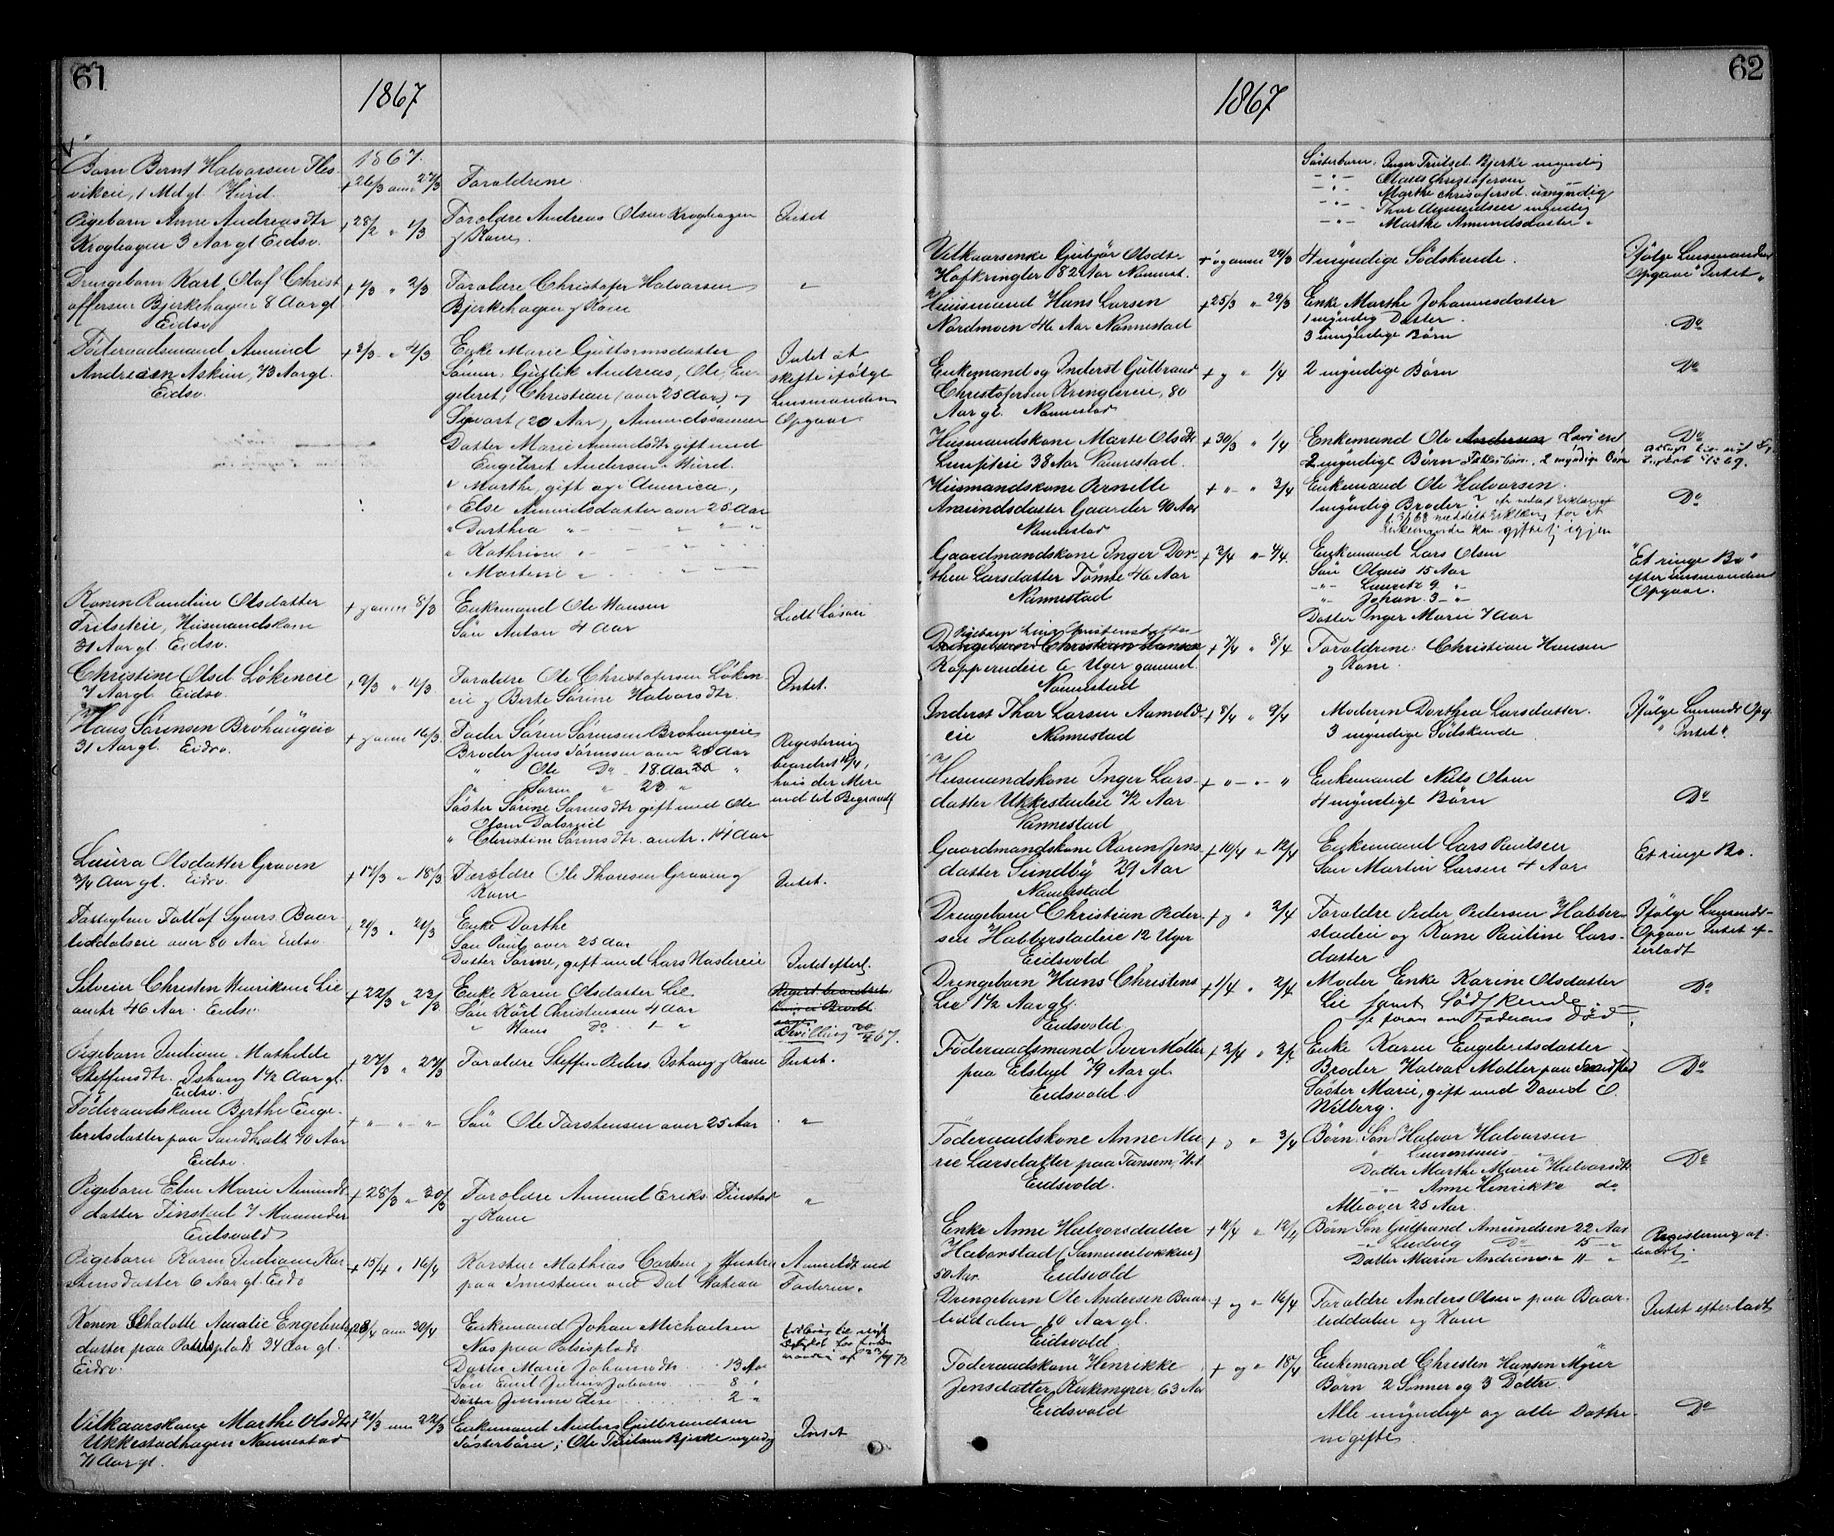 61
1867
Barn Bernt Halvarsen Fles-
vikeie, 1 Md gl. Hurd.
1867.
+ 26/3 anm 27/3
Forældrene.
Pigebarn Anne Andreasdtr
Kroghagen 3 Aar gl Eidsv.
+ 28/2 " 1/3
Forældre Andreas Olsen Kroghagen
og Kone.
Intet
Drengebarn Karl Olaf Christ
offersen Bjerkehagen 8 Aar gl
Eidsv.
+ 1/3 " 2/3
Forældre Christofer Halvorsen
Bjerkehagen og Kone
"
Föderaadsmand Amund
Andresen Askim, 73 Aar gl.
Eidsv.
+ 3/3 " 4/3
Enke Marie Guttormsdatter
Sönner: Gutlik Andreas, Ole, En-
gebret, Christian (over 25 Aar) og
Syvart (20 Aar), Amundssönner
Datter Marie Amundsdtr gift med
Engebret Andersen Hurd.
" Marthe, gift og i America,
" Else Amundsdatter over 25 Aar
" Dorthea " " "
" Kathrine "
" Martine "
Intet at
skifte ifölge
Lensmandens
Opgave
Konen Randine Olsdatter
Husmandskone
31 Aar gl. Eidsv.
+ og anm 8/3
Enkemand Ole Hansen
Sön Anton 4 Aar
Lidt Lösöre
Christine Olsd Lökeneie
7 Aar gl Eidsv.
+ 9/3 " 11/3
Forældre Ole Christofersen Löken
eie og Berte Sörine Halvorsdtr.
Intet.
Hans Sörensen Bröhaugeie
31 Aar gl. Eidsv.
+ og anm 16/3
Fader Sören Sörensen Brohaugeie
Broder Jens Sörensen over 25 Aar
" Ole Do 18 Aar
" Sören " 23 "
Söster Sörine Sörensdtr gift med Ole
Olsen Dalsrud
" Christine Sörensdtr. omtr. 14 Aar
Registering
beordret
hvis der Mere
end til Begravelse
Laura Olsdatter Graven
3/4 Aar gl. Eidsv.
+ 17/3 " 18/3
Forældre Ole Thoresen Graven og
Kone
Intet.
Fattiglem Tollof Syvers. Baar
liddalseie over 80 Aar Eidsv.
+ 21/3 " 21/3
Enke Dorthe
Sön Paul over 25 Aar
Datter Sörine, gift med Lars Haslereie
Intet efterl.
Selveier Christen Henriksen Lie
omtr 46 Aar. Eidsv.
+ 22/3 " 23/3
Enke Karen Olsdatter Lie
Sön Karl Christensen 4 Aar
" Hans Do 1 "
Bevilling 20/4 67.
Pigebarn Juliane Mathilde
Steffensdtr. Ishaug 1 1/2 Aar gl.
Eidsv.
+ 27/3 " 27/3
Forældre Steffen Peders. Ishaug og Kone
Intet.
Föderaadskone Berthe Enge-
bretsdatter paa Sandholt 70 Aar
Eidsv.
+ " " "
Sön Ole Torstensen over 25 Aar
"
Pigebarn Elen Marie Amunds
datter Finstad 7 Maaneder
Eidsvold
+ 28/3 " 30/3
Forældre Amund Eriks. Finstad
og Kone
"
Pigebarn Karen Juliane Kar
stensdatter 6 Aar gl. Eids
+ 15/4 " 16/4
Karsten Mathias Carlsen og Hustru
paa ved Dal Station
Anmeldt ved
Faderen.
Konen Schalotte Amalie Engebrets
datter paa 34 Aar gl.
Eidsv.
+ 28/4 anm 30/4
Enkemand Johan Michaelsen
Næs paa
Datter Marie Johansdtr. 13 Aar
Sön Emil Julius Johans. 8 "
Datter Jensine Elise 2 "
Vilkaarskone Marthe Olsdtr
Ukkestadhagen Nannestad
71 Aar gl.
+ 21/3 anm 22/3
Enkemand Anders Gulbrandsen
Sösterbörn: Ole Trulsen Bjerke myndig
Intet
62
1867
Sösterbarn: Inger Trulsd. Bjerke myndig
- " - Mads Christofersen
- " - Marthe Christofersd. umyndig
- " - Thor Amundsen myndig
- " - Marthe Amundsdatter "
Vilkaarsenke Gubjör Olsdtr
Hofkringler 82 Aar Nannest.
+ og anm 29/3
4 myndige Södskende.
Ifölge Lensmandens
Opgave "Intet"
Husmand Hans Larsen
Nordmoen 46 Aar Nannestad
+ 25/3 " 29/3
Enke Marthe Johannesdatter
1 myndig Datter.
3 umyndige Börn
Do
Enkemand og Inderst Gulbrand
Christofersen Kringlereie, 80
Aar gl. Nannestad
+ og " 1/4
2 myndige Börn
Do
Husmandskone Marte Olsdtr
38 Aar Nannestad.
+ 30/3 " 1/4
Enkemand Ole Andersen
2 myndige Börn
Do
Husmandskone Pernelle
Amundsdatter Gaarder 90 Aar
Nannestad
+ " " 3/4
Enkemand Ole Halvorsen.
1 myndig Broder?
meddelt Erklæring for at
Enkemanden kan gifte sig igjen
Do
Gaardmandskone Inger Dor-
thea Larsdatter Tömte 46 Aar
Nannestad
+ 3/4 " 4/4
Enkemand Lars Olsen
Sön Olaus 15 Aar
" Laurits 9 "
" Johan 3 "
Datter Inger Marie 7 Aar
"Et ringe Bo"
efter Lensmandens
Opgave.
Drengebarn Christian Hansen
Kopperudeie 6 Uger gammel
Nannestad
+ 7/4 " 8/4
Forældrene: Christian Hansen
og Kone
Inderst Thor Larsen Aamold-
eie Nannestad
+ 8/4 " 9/4
Moderen Dorthea Larsdatter.
3 myndige Södskende
Ifölge Lensmds Opg
"Intet".
Husmandskone Inger Lars-
datter Ukkestadeie 72 Aar
Nannestad
+ " " "
Enkemand Niels Olsen
4 myndige Börn
Do
Gaardmandskone Karen Jens
datter Sundby 29 Aar
Nannestad
+ 10/4 " 12/4
Enkemand Lars Paulsen
Sön Martin Larsen 4 Aar
Et ringe Bo.
Drengebarn Christian Peder-
sen Habberstadeie 12 Uger
Eidsvold
+ og " 2/4
Forældre Peder Pedersen Habber-
stadeie og Kone Pauline Lars-
datter
Ifölge Lensmds-
Opgave Intet ef-
terladt
Drengebarn Hans Christens
Lie 1 1/2 Aar gl.
Eidsvold
+ 1/4 " 2/4
Moder Enke Karine Olsdatter
Lie samt Södskende.
se foran om Faderens Död.
Do
Föderaadsmand Iver Moller
paa Elstad 79 Aar gl.
Eidsvold
+ 2/4 " 3/4
Enke Karen Engebretsdatter
Broder Halvor Moller paa
Söster Marie, gift med David O.
Wilberg.
Do
Föderaadskone Anne Ma-
rie Larsdatter paa Tansem,
Eidsvold.
+ og " 3/4
Börn Sön Halvor Halvorsen
"
Datter Marthe Marie Halvorsdtr
" Anne Henrikke do
Alle over 25 Aar.
Do
Enke Anne Halvorsdatter
Haberstad (Sammerlökken)
50 Aar. Eidsvold
+ 11/4 " 12/4
Börn Sön Gulbrand Amundsen 22 Aar
" Ludvig Do 15 "
Datter Maren Andrine 11 "
Registering af-
holdt.
Drengebarn Ole Andersen Baar
liddalen 10 Aar gl.
Eidsvold.
+ og " 16/4
Forældre Anders Olsen paa Baar-
liddalen og Kone
Intet efterladt
Föderaadskone Henrikke
Jensdatter Kirkemyrer, 63 Aar
Eidsvold
+ og " 18/4
Enkemand Christen Hansen Myrer
Börn 2 Sönner og 3 Döttre.
Alle myndige og alle Döttre
ugifte.
Do